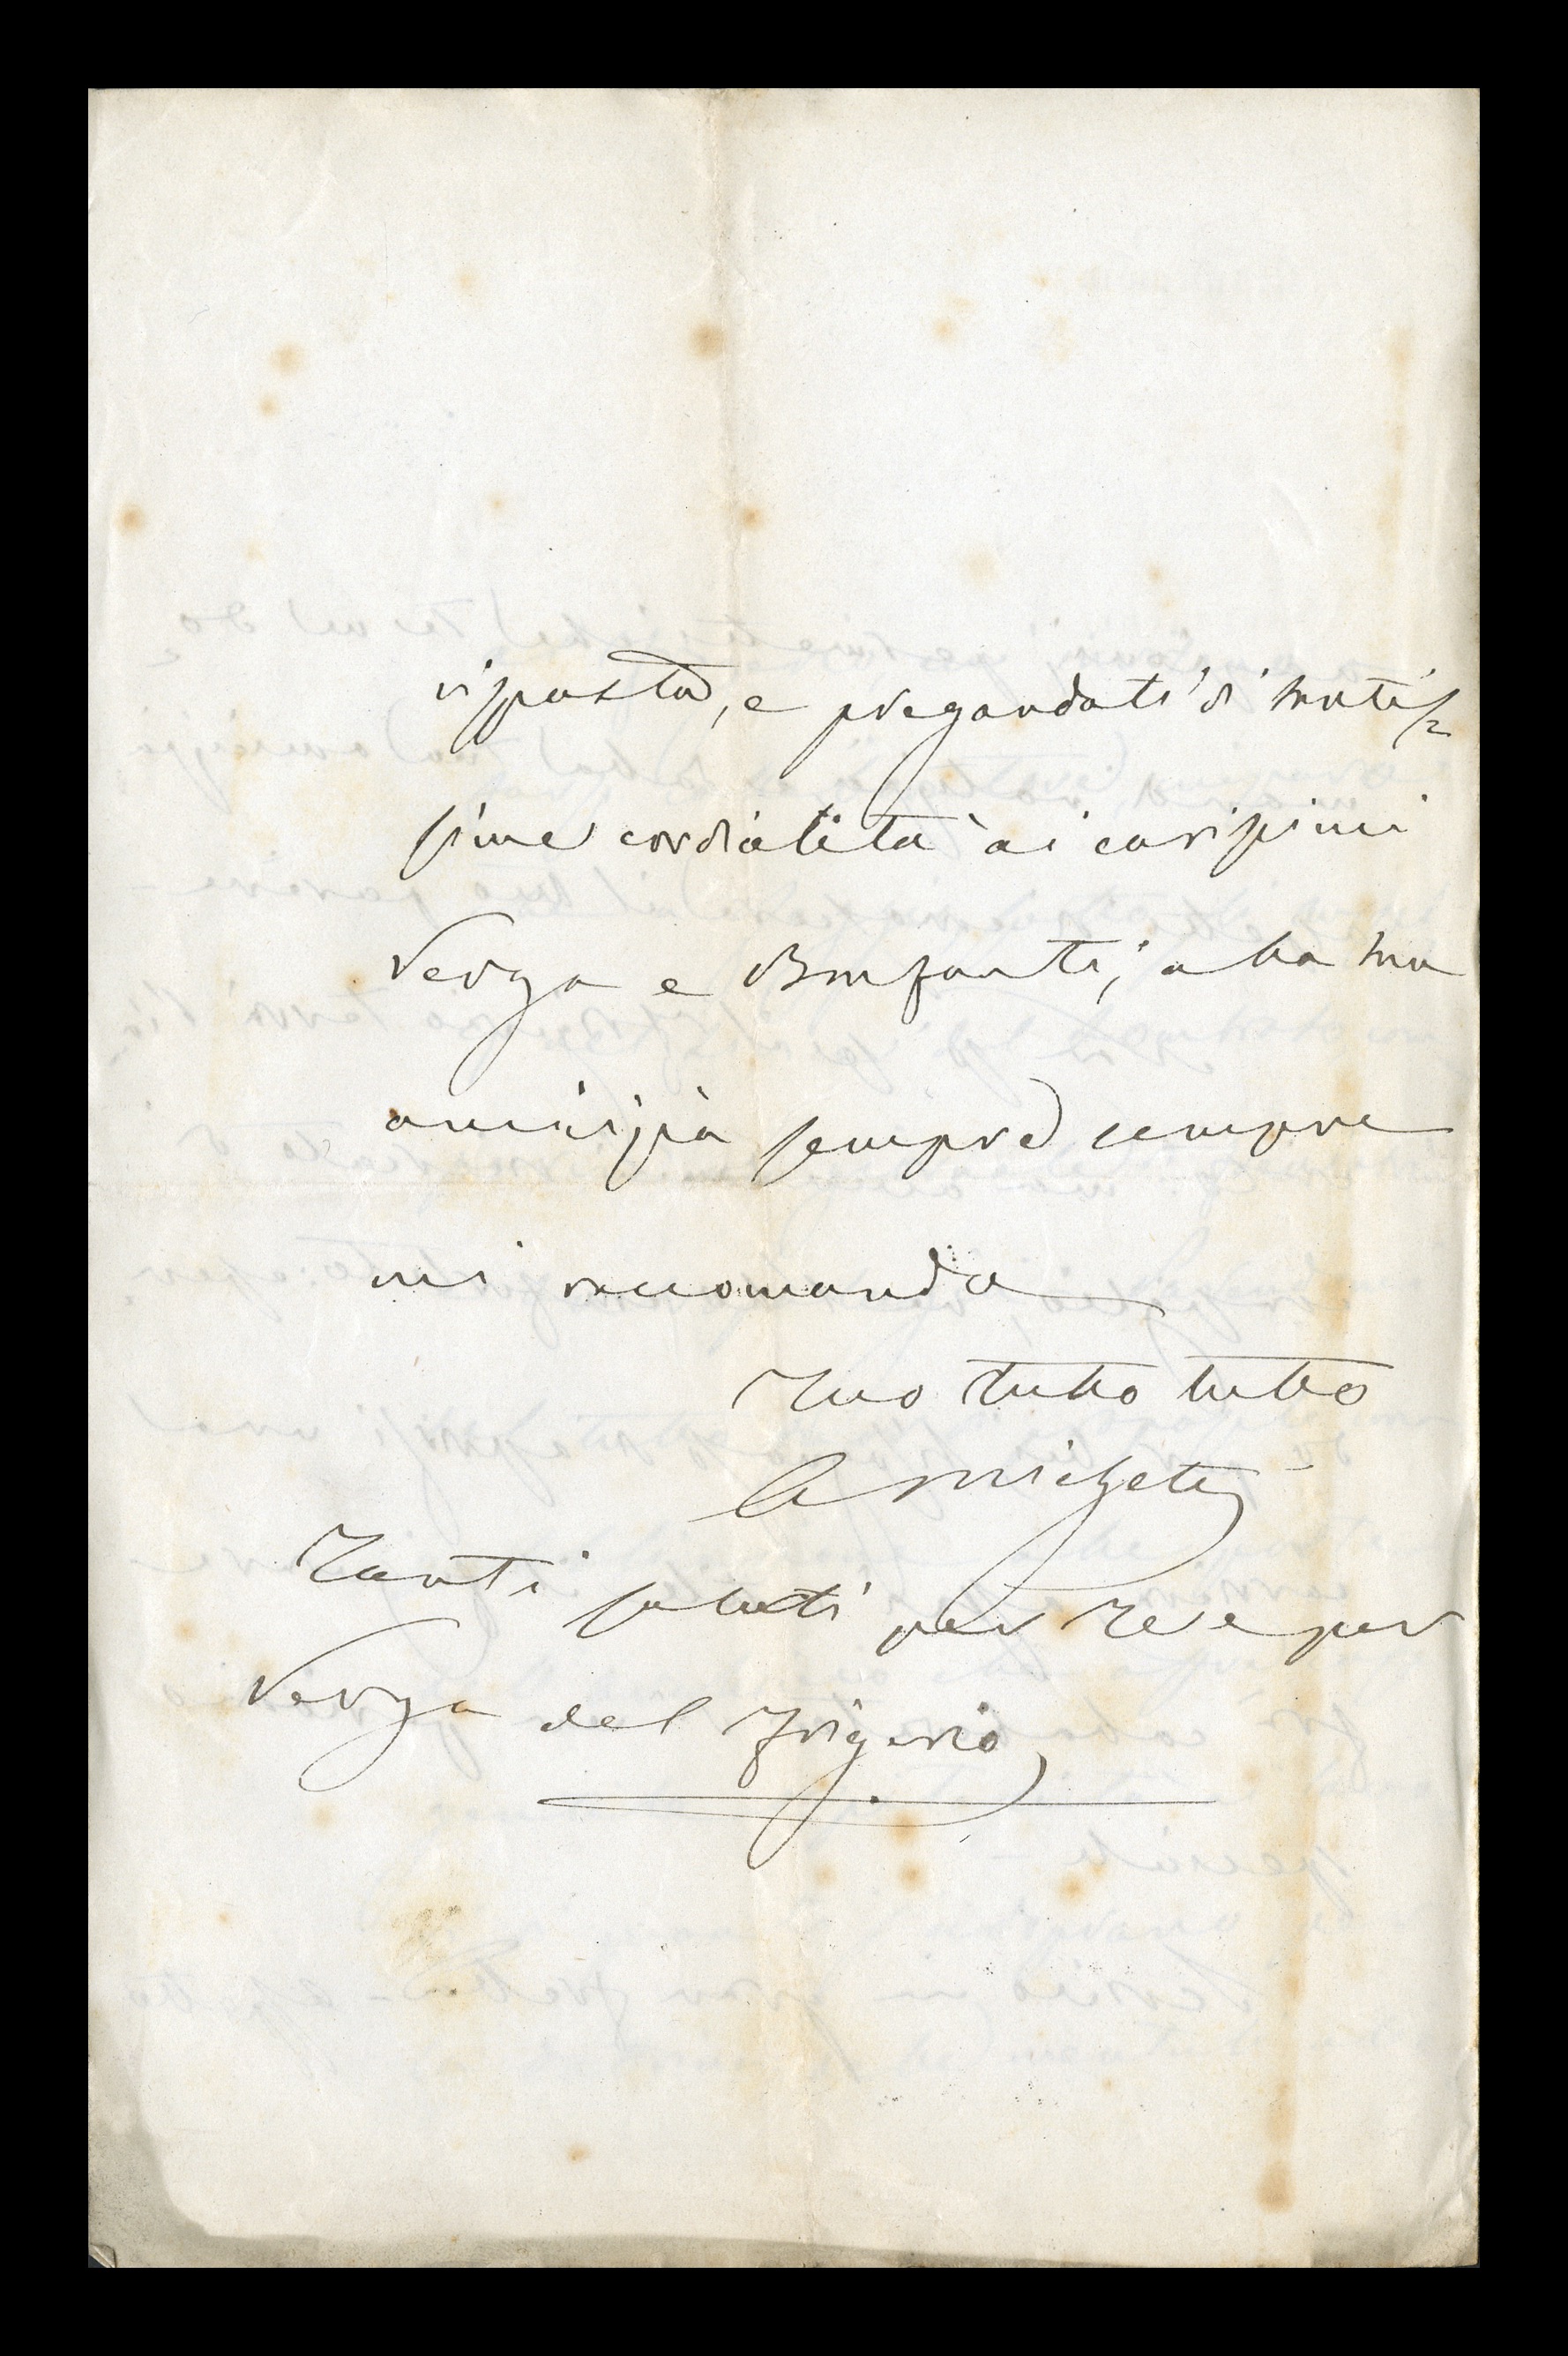 risposta, e pregandoti di moltis=
sime cordialità ai carissimi
Verga e Bonfanti, alla tua
amicizia sempre sempre
mi raccomando
Tuo tutto tutto
Tanti saluti per te e per
Verga del Frigerio